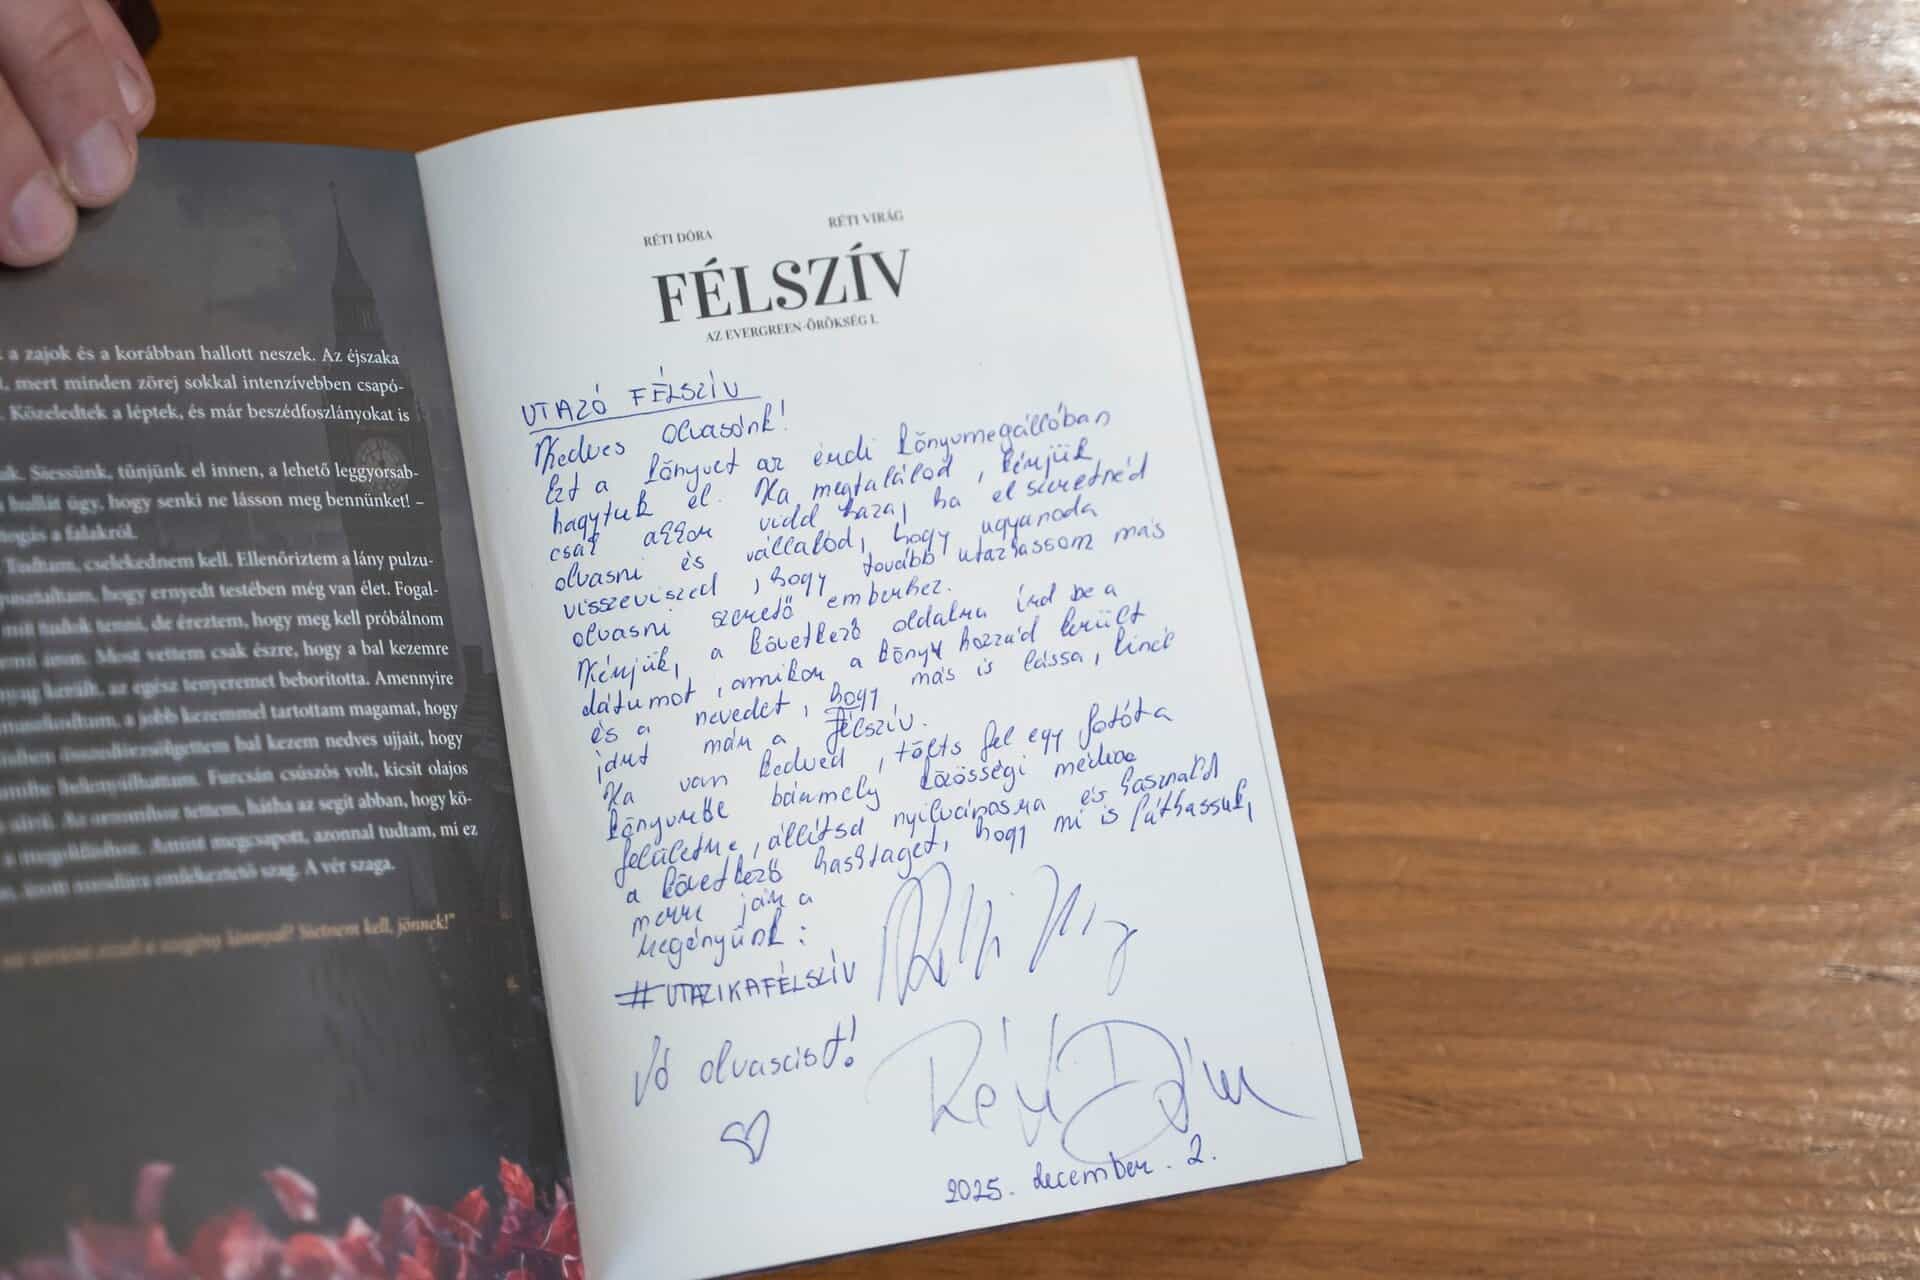 a zajok és a korábban hallott neszek. Az éjszaka
, mert minden zörej sokkal intenzívebben csapó-
. Közeledtek a léptek, és már beszédfoszlányokat is
Siessünk, tűnjünk el innen, a lehető leggyorsab-
hullát úgy, hogy senki ne lásson meg bennünket! –
a falakról.
Tudtam, cselekednem kell. Ellenőriztem a lány pulzu-
hogy ernyedt testében még van élet. Fogal-
mit tudok tenni, de éreztem, hogy meg kell próbálnom
Most vettem csak észre, hogy a bal kezemre
az egész tenyeremet beborította. Amennyire
a jobb kezemmel tartottam magamat, hogy
bal kezem nedves ujjait, hogy
Furcsán csúszós volt, kicsit olajos
Az orromhoz tettem, hátha az segít abban, hogy kö-
Amint megcsapott, azonnal tudtam, mi ez
emlékeztető szag. A vér szaga.
Sietnem kell, jönnek!"
RÉTI DÓRA RÉTI VIRÁG
FÉLSZÍV
AZ EVERGREEN-ÖRÖKSÉG I.
UTAZÓ FÉLSZÍV
Kedves Olvasónk!
Ezt a könyvet az érdi könyvmegállóban
hagytuk el. Ha megtalálod, kérjük,
csak akkor vidd haza, ha el szeretnéd
olvasni és vállalod, hogy ugyanoda
visszaviszed, hogy tovább utazhasson más
olvasni szerető emberhez.
Kérjük, a következő oldalra írd be a
dátumot, amikor a könyv hozzád került
és a nevedet, hogy más is lássa, kinél
járt már a Félszív.
Ha van kedved, tölts fel egy fotót a
könyvről bármely közösségi média
felületre, állítsd nyilvánosra és használd
a következő hashtaget, hogy mi is láthassuk,
merre jár a
regényünk:
#UTAZIKAFÉLSZÍV
Jó olvasást!
Réti Dóra
2025. december. 2.